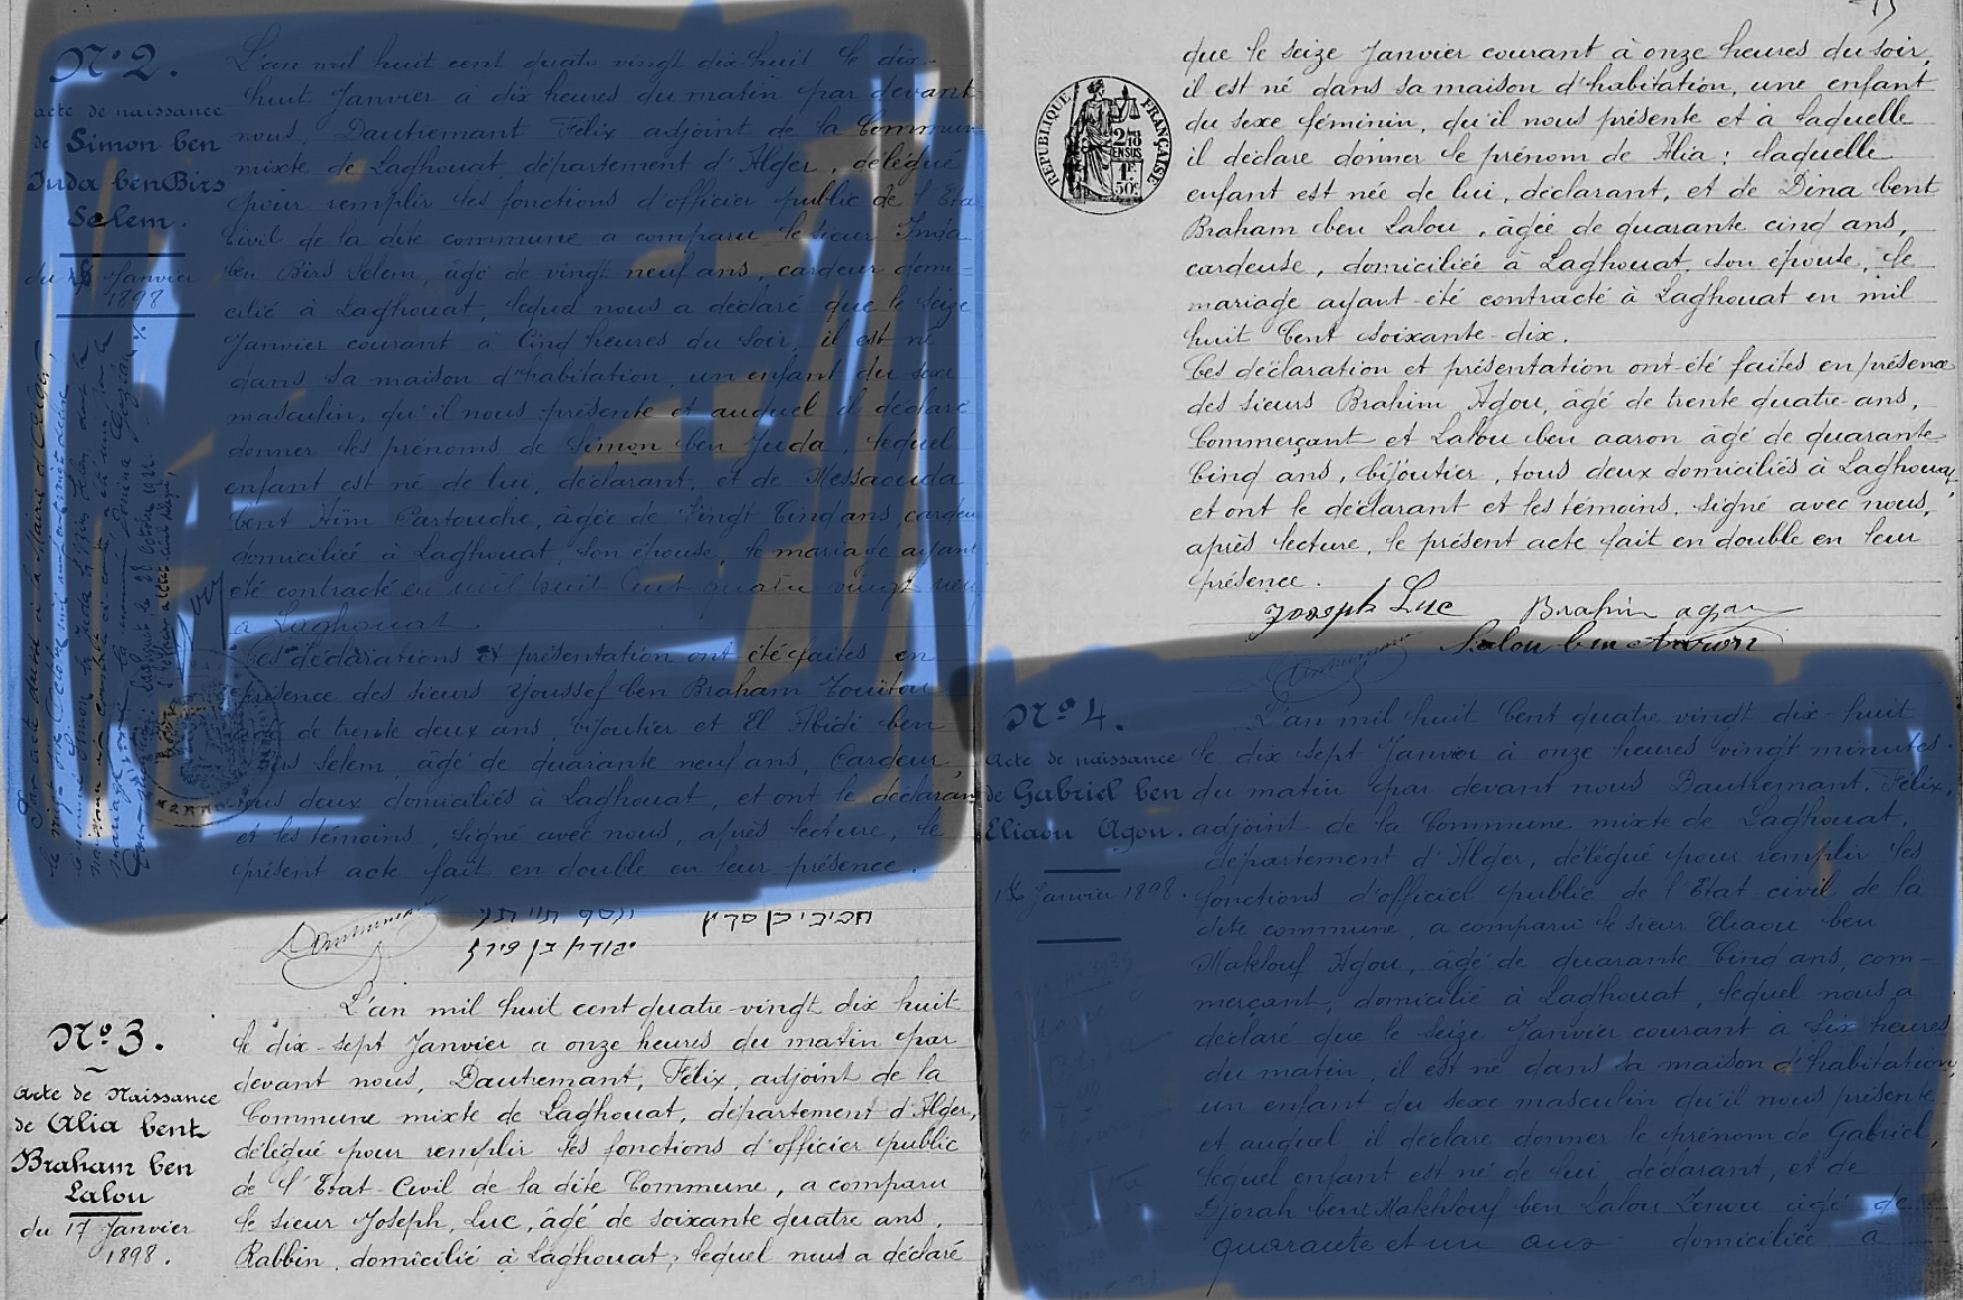 N° 2.
acte de naissance
de Simon ben
Juda ben Birs
Selem.
du 18 Janvier
1898
L'an mil huit cent quatre vingt dix huit le dix-
huit Janvier à dix heures du matin par devant
nous, Dautremant Félix adjoint de la Commune
mixte de Laghouat, département d'Alger, délégué
pour remplir les fonctions d'officier public de l'Etat
Civil de la dite commune a comparu le sieur Juda
ben Birs Selem, âgé de vingt neuf ans, cardeur domi-
cilié à Laghouat, lequel nous a déclaré que le seize
Janvier courant à Cinq heures du soir, il est né
dans sa maison d'habitation, un enfant du sexe
masculin, qu'il nous présente et auquel il déclare
donner les prénoms de Simon ben Juda, lequel
enfant est né de lui, déclarant, et de Messaouda
bent Aïm Cartouche, âgée de Vingt Cinq ans, cardeu
domiciliée à Laghouat, son épouse, le mariage ayant
été contracté en mil huit Cent quatre vingt neuf
à Laghouat.
Ces déclarations et présentation ont été faites en
présence des sieurs Youssef ben Braham Touitou
âgé de trente deux ans, bijoutier et El Abidi ben
Birs Selem, âgé de quarante neuf ans, Cardeur,
tous deux domiciliés à Laghouat, et ont le déclarant
et les témoins, signé avec nous, après lecture, le
présent acte fait en double en leur présence.
N° 3.
Acte de Naissance
de Alia bent
Braham ben
Lalou
du 17 Janvier
1898.
L'an mil huit cent quatre-vingt dix huit
le dix-sept Janvier a onze heures du matin par
devant nous, Dautremant, Félix, adjoint de la
Commune mixte de Laghouat, département d'Alger,
délégué pour remplir les fonctions d'officier public
de l'Etat-Civil de la dite Commune, a comparu
le sieur Joseph, Luc, âgé de soixante quatre ans,
Rabbin, domicilié à Laghouat, lequel nous a déclaré
que le seize Janvier courant à onze heures du soir,
il est né dans sa maison d'habitation, une enfant
du sexe féminin, qu'il nous présente et à laquelle
il déclare donner le prénom de Alia; laquelle
enfant est née de lui, déclarant, et de Dina bent
Braham ben Lalou, âgée de quarante cinq ans,
cardeuse, domiciliée à Laghouat, son épouse, le
mariage ayant été contracté à Laghouat en mil
huit Cent soixante-dix.
Ces déclaration et présentation ont été faites en présence
des sieurs Brahim Agou, âgé de trente quatre ans,
Commerçant et Lalou ben aaron âgé de quarante
Cinq ans, bijoutier, tous deux domiciliés à Laghouat,
et ont le déclarant et les témoins, signé avec nous,
après lecture, le présent acte fait en double en leur
présence.
Joseph Luc Brahim agou
Lalou ben Aaron
RÉPUBLIQUE FRANÇAISE
N° 4.
Acte de naissance
de Gabriel ben
Eliaou Agou.
Janvier 1898.
L'an mil huit Cent quatre vingt dix-huit
le dix sept Janvier à onze heures vingt minutes
du matin par devant nous Dautremant, Félix,
adjoint de la Commune mixte de Laghouat,
département d'Alger, délégué pour remplir les
fonctions d'officier public de l'Etat-civil de la
dite commune, a comparu le sieur Eliaou ben
Maklouf Agou, âgé de quarante Cinq ans, com-
merçant, domicilié à Laghouat, lequel nous a
déclaré que le seize Janvier courant à six heures
du matin, il est né dans sa maison d'habitation,
un enfant du sexe masculin qu'il nous présente
et auquel il déclare donner le prénom de Gabriel,
lequel enfant est né de lui, déclarant, et de
bent Makhlouf ben Lalou âgée de
quarante et un ans domiciliée à